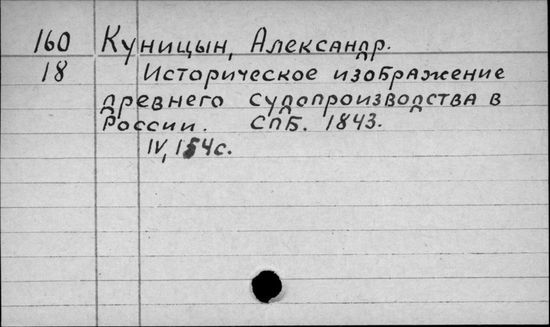 160 Куницын, Александр.
18 Историческое изображение
древнего судопроизводства в
России. СПБ. 1843.
IV, 154с.